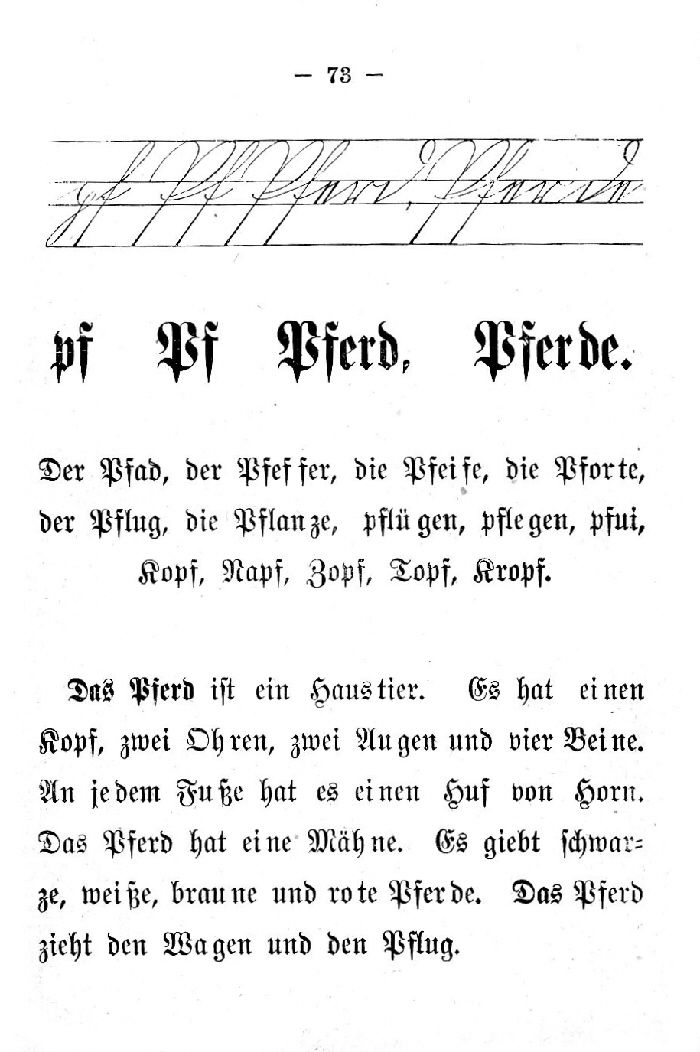 — 73 —
pf Pf Pferd, Pferde
pf Pf Pferd, Pferde.
Der Pfad, der Pfeffer, die Pfeife, die Pforte,
der Pflug, die Pflanze, pflügen, pflegen, pfui,
Kopf, Napf, Zopf, Topf, Kropf.
Das Pferd ist ein Haustier. Es hat einen
Kopf, zwei Ohren, zwei Augen und vier Beine.
An jedem Fuße hat es einen Huf von Horn.
Das Pferd hat eine Mähne. Es giebt schwar-
ze, weiße, braune und rote Pferde. Das Pferd
zieht den Wagen und den Pflug.